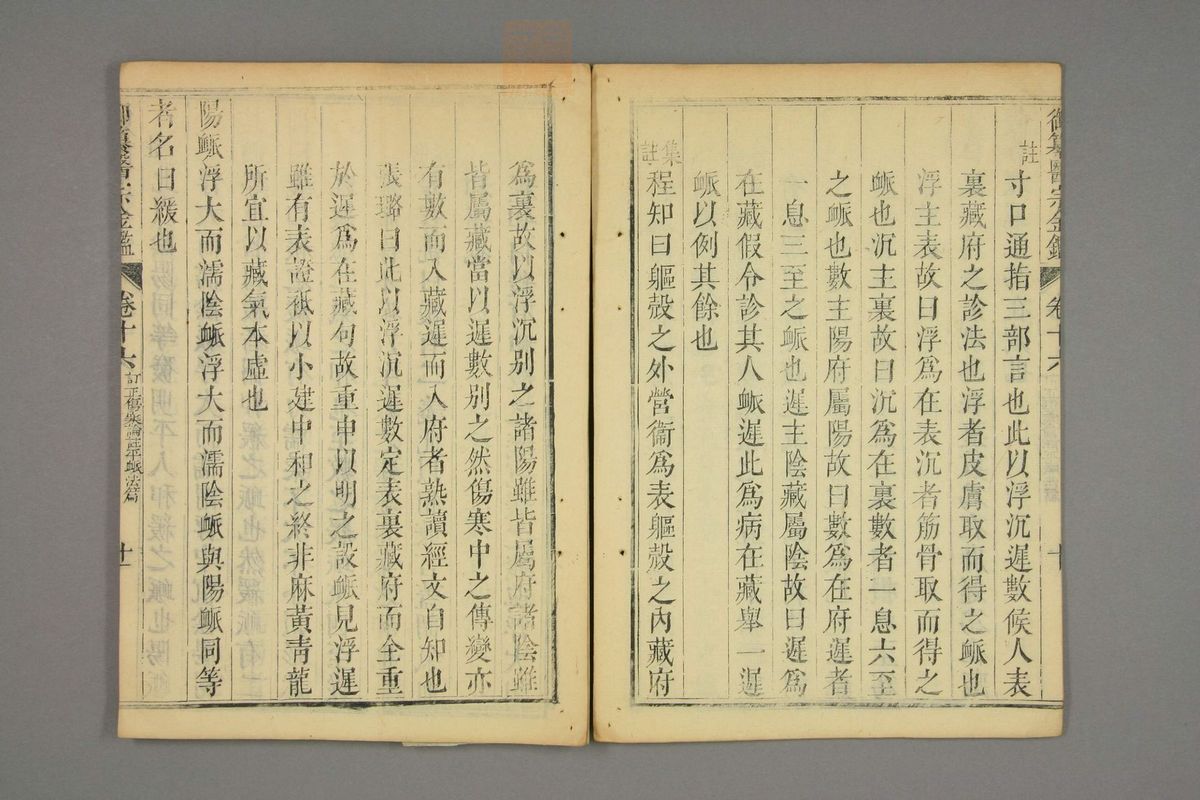 御纂醫宗金鑑 卷十六 十
註
寸口通指三部言也此以浮沉遲數候人表
裏藏府之診法也浮者皮膚取而得之䘑也
浮主表故曰浮爲在表沉者筋骨取而得之
䘑也沉主裏故曰沉爲在裏數者一息六至
之䘑也數主陽府屬陽故曰數爲在府遲者
一息三至之䘑也遲主陰藏屬陰故曰遲爲
在藏假令診其人䘑遲此爲病在藏舉一遲
䘑以例其餘也
集註
程知曰軀殼之外營衞爲表軀殼之內藏府
爲裏故以浮沉別之諸陽雖皆屬府諸陰雖
皆屬藏當以遲數別之然傷寒中之傳變亦
有數而入藏遲而入府者熟讀經文自知也
張璐曰此以浮沉遲數定表裏藏府而全重
於遲爲在藏句故重申以明之設䘑見浮遲
雖有表證祗以小建中和之終非麻黃靑龍
所宜以藏氣本虛也
陽䘑浮大而濡陰䘑浮大而濡陰䘑與陽䘑同等
者名曰緩也
御纂醫宗金鑑 卷十六 訂正傷寒論註平䘑法篇 十一